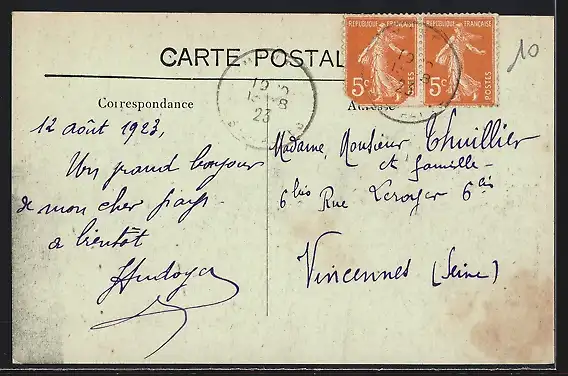 CARTE POSTAL
RÉPUBLIQUE FRANÇAISE
5c
POSTES
RÉPUBLIQUE FRANÇAISE
5c
POSTES
10
Correspondance
Adresse
23
23
12 août 1923,
Un grand bonjour
de mon cher pays
a bientôt
Madame, Monsieur Thuillier
et famille -
6bis Rue Leroyer 6bis
Vincennes (Seine)